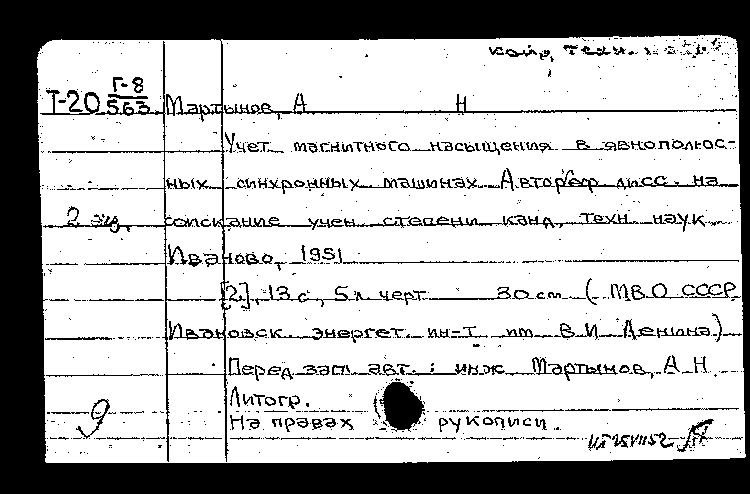 канд. техн.
Г-8
Т-20 563 Мартынов, А Н
Учет магнитного насыщения в явнополюс-
ных синхронных машинах Автореф дисс. на
2 экз. соискание учен. степени канд. техн наук.
Иваново, 1951
[2], 13 с, 5 л. черт 30 см (МВО СССР
Ивановск. энергет. ин-т им В И Ленина)
Перед загл. авт.: инж Мартынов, А Н.
Литогр.
9 На правах рукописи.